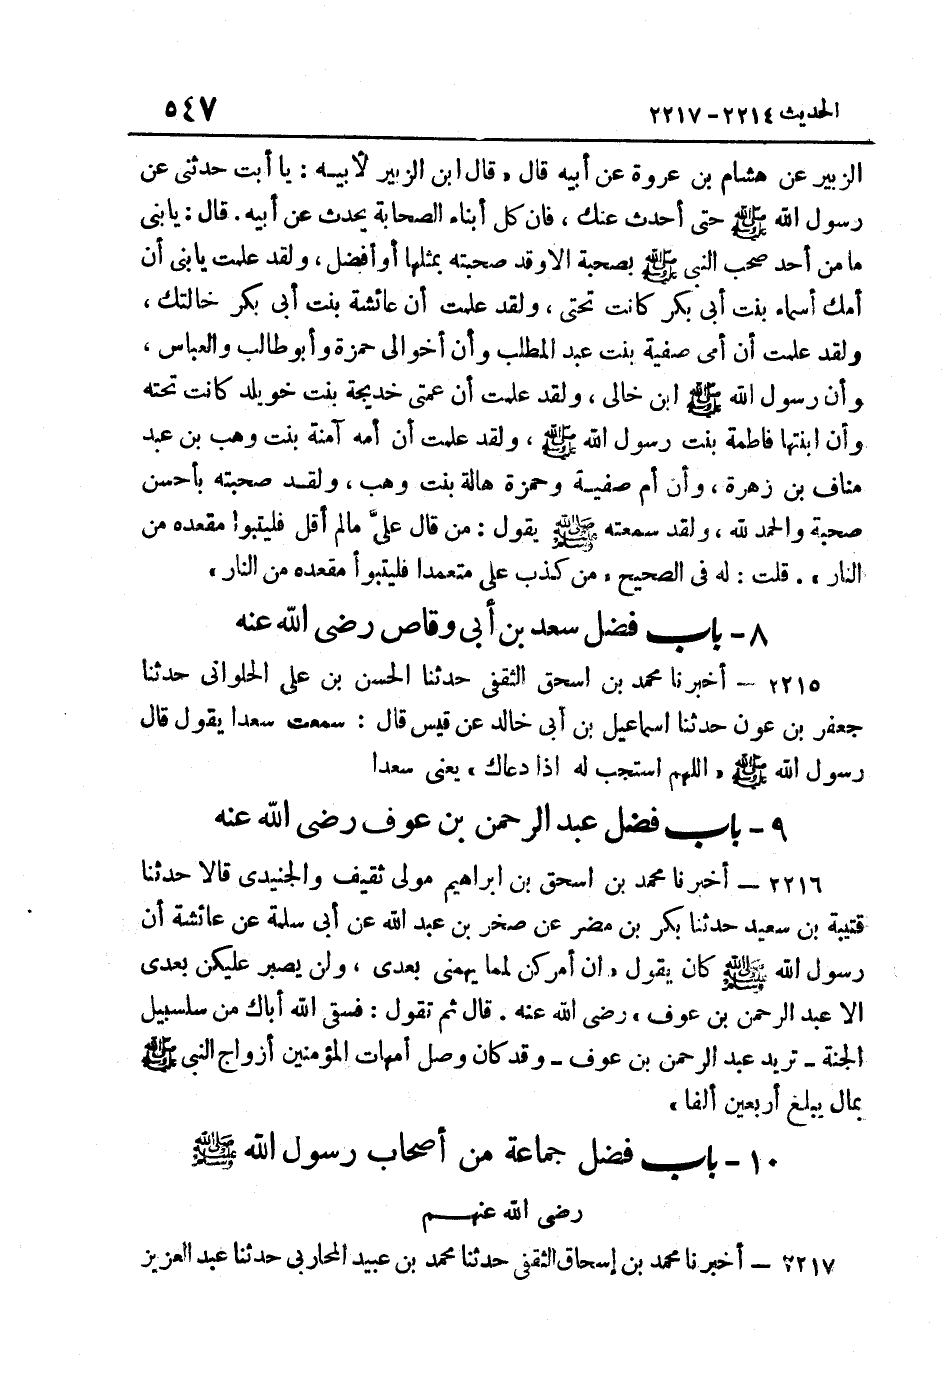 الحديث ٢٢١٤ - ٢٢١٧ ٥٤٧
الزبير عن هشام بن عروة عن أبيه قال « قال ابن الزبير لأبيه : يا أبت حدثنى عن
رسول الله ﷺ حتى أحدث عنك ، فان كل أبناء الصحابة يحدث عن أبيه . قال : يابنى
ما من أحد صحب النبي ﷺ بصحبة الا وقد صحبته بمثلها أو أفضل ، ولقد علمت يابنى أن
أمك أسماء بنت أبى بكر كانت تحتى ، ولقد علمت أن عائشة بنت أبى بكر خالتك ،
ولقد علمت أن أمى صفية بنت عبد المطلب وأن أخوالى حمزة وأبوطالب والعباس ،
وأن رسول الله ﷺ ابن خالى ، ولقد علمت أن عمتى خديجة بنت خويلد كانت تحته
وأن ابنتها فاطمة بنت رسول الله ﷺ ، ولقد علمت أن أمه آمنة بنت وهب بن عبد
مناف بن زهرة ، وأن أم صفية وحمزة هالة بنت وهب ، ولقد صحبته بأحسن
صحبة والحمد لله ، ولقد سمعته ﷺ يقول : من قال علىَّ مالم أقل فليتبوأ مقعده من
النار » . قلت : له فى الصحيح « من كذب على متعمدا فليتبوأ مقعده من النار »
٨ - باب فضل سعد بن أبى وقاص رضى الله عنه
٢٢١٥ – أخبرنا محمد بن اسحق الثقفى حدثنا الحسن بن على الحلوانى حدثنا
جعفر بن عون حدثنا اسماعيل بن أبى خالد عن قيس قال : سمعت سعدا يقول قال
رسول الله ﷺ « اللهم استجب له اذا دعاك » يعنى سعدا
٩ - باب فضل عبد الرحمن بن عوف رضى الله عنه
٢٢١٦ – أخبرنا محمد بن اسحق بن ابراهيم مولى ثقيف والجنيدى قالا حدثنا
قتيبة بن سعيد حدثنا بكر بن مضر عن صخر بن عبد الله عن أبى سلمة عن عائشة أن
رسول الله ﷺ كان يقول « ان أمركن لمما يهمنى بعدى ، ولن يصبر عليكن بعدى
الا عبد الرحمن بن عوف » رضى الله عنه . قال ثم تقول : فسقى الله أباك من سلسبيل
الجنة ـ تريد عبد الرحمن بن عوف ـ وقد كان وصل أمهات المؤمنين أزواج النبى ﷺ
بمال يبلغ أربعين ألفا »
١٠ - باب فضل جماعة من أصحاب رسول الله ﷺ
رضى الله عنهم
٢٢١٧ – أخبرنا محمد بن إسحاق الثقفى حدثنا محمد بن عبيد المحاربى حدثنا عبد العزيز